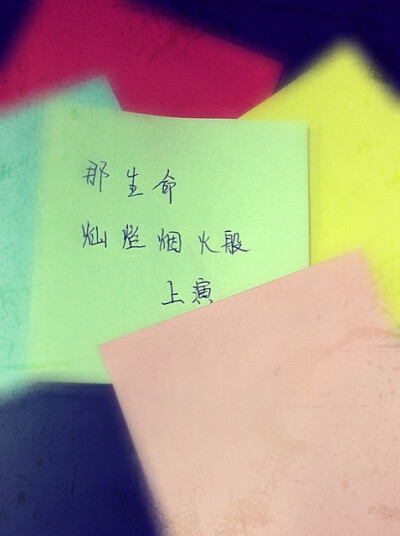 那生命
灿烂烟火般
上演